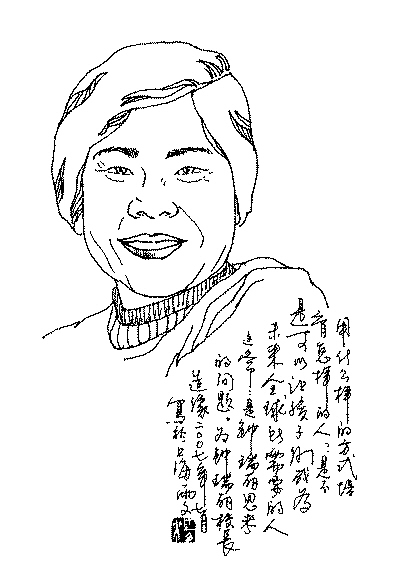 用什么样的方式培
育怎样的人？是否
是可以让孩子们成为
未来全球所需要的人
这些都是钟瑞明思考
的问题。为钟瑞明校长
造像二〇〇七年七月
写于上海